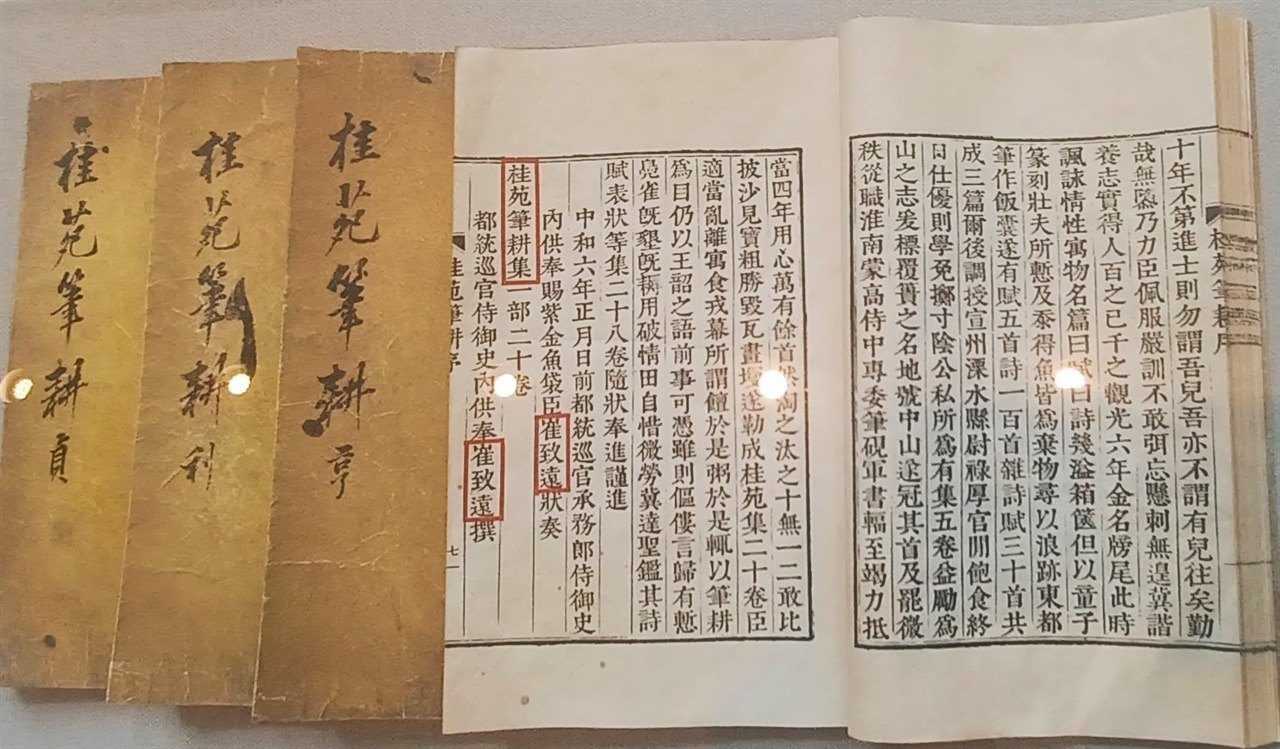 桂苑筆耕序
十年不第進士則勿謂吾兒吾亦不謂有兒往矣勤
哉無隳乃力臣佩服嚴訓不敢弭忘懸刺無遑冀諧
養志實得人百之己千之觀光六年金名牓尾此時
諷詠情性寓物名篇曰賦曰詩幾溢箱篋但以童子
篆刻壯夫所慙及忝得魚皆爲棄物尋以浪跡東都
筆作飯囊遂有賦五首詩一百首雜詩賦三十首共
成三篇爾後調授宣州溧水縣尉祿厚官閒飽食終
日仕優則學免擲寸陰公私所爲有集五卷益勵爲
山之志爰標覆簣之名地號中山遂冠其首及罷微
秩從職淮南蒙高侍中專委筆硯軍書輻至竭力抵
當四年用心萬有餘首然淘之汰之十無一二敢比
披沙見寶粗勝毀瓦畫墁遂勒成桂苑集二十卷臣
適當亂離寓食戎幕所謂饘於是粥於是輒以筆耕
爲目仍以王韶之語前事可憑雖則傴僂言歸有慙
鳧雀旣墾旣耨用破情田自惜微勞冀達聖鑑其詩
賦表狀等集二十八卷隨狀奉進謹進
中和六年正月日前都統巡官承務郎侍御史
內供奉賜紫金魚袋臣崔致遠狀奏
桂苑筆耕集一部二十卷
都統巡官侍御史內供奉崔致遠撰
桂苑筆耕序 七
桂苑筆耕 亨
桂苑筆耕 利
桂苑筆耕 貞